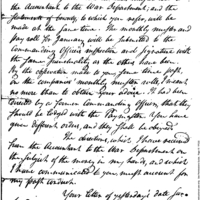 the Accountant to the War Department, and the
statements of bounty, to which you refer, will be
made at the same time. The monthly muster and
pay roll for January will be submitted to the
Commanding Officers inspection and signature with
the same punctuality as the others have been.
By the observation made to you some time past,
that the company monthly musters would be sent
no more than to obtain your advice. It had been
directed by a former commanding officer, that they
should be lodged with the Paymaster. You have
given different orders, and they shall be obeyed.
The directions, which I have received
from the Accountant to the War Department on
the subject of the money in my hands, and which
I have communicated to you, must account for
my past conduct.
Your letter of yesterday's date